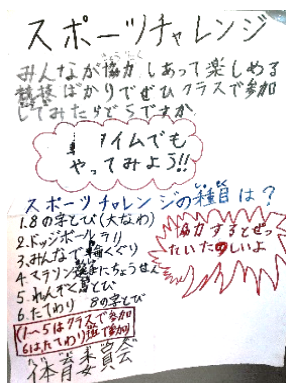 スポーツチャレンジ
みんなが協力しあって楽しめる
競技ばかりでぜひクラスで参加
してみたらどうですか
イムでも
やってみよう!!
スポーツチャレンジの種目は?
1.8の字とび(大なわ)
2.ドッジボールラリ
3.みんなで輪くぐり
4.マラソン選手にちょうせん
5.れんぞく馬とび
6.たてわり 8の字とび
(1〜5はクラスで参加
6はたてわり班で参加)
体育委員会
協力するとぜっ
たいたのしいよ